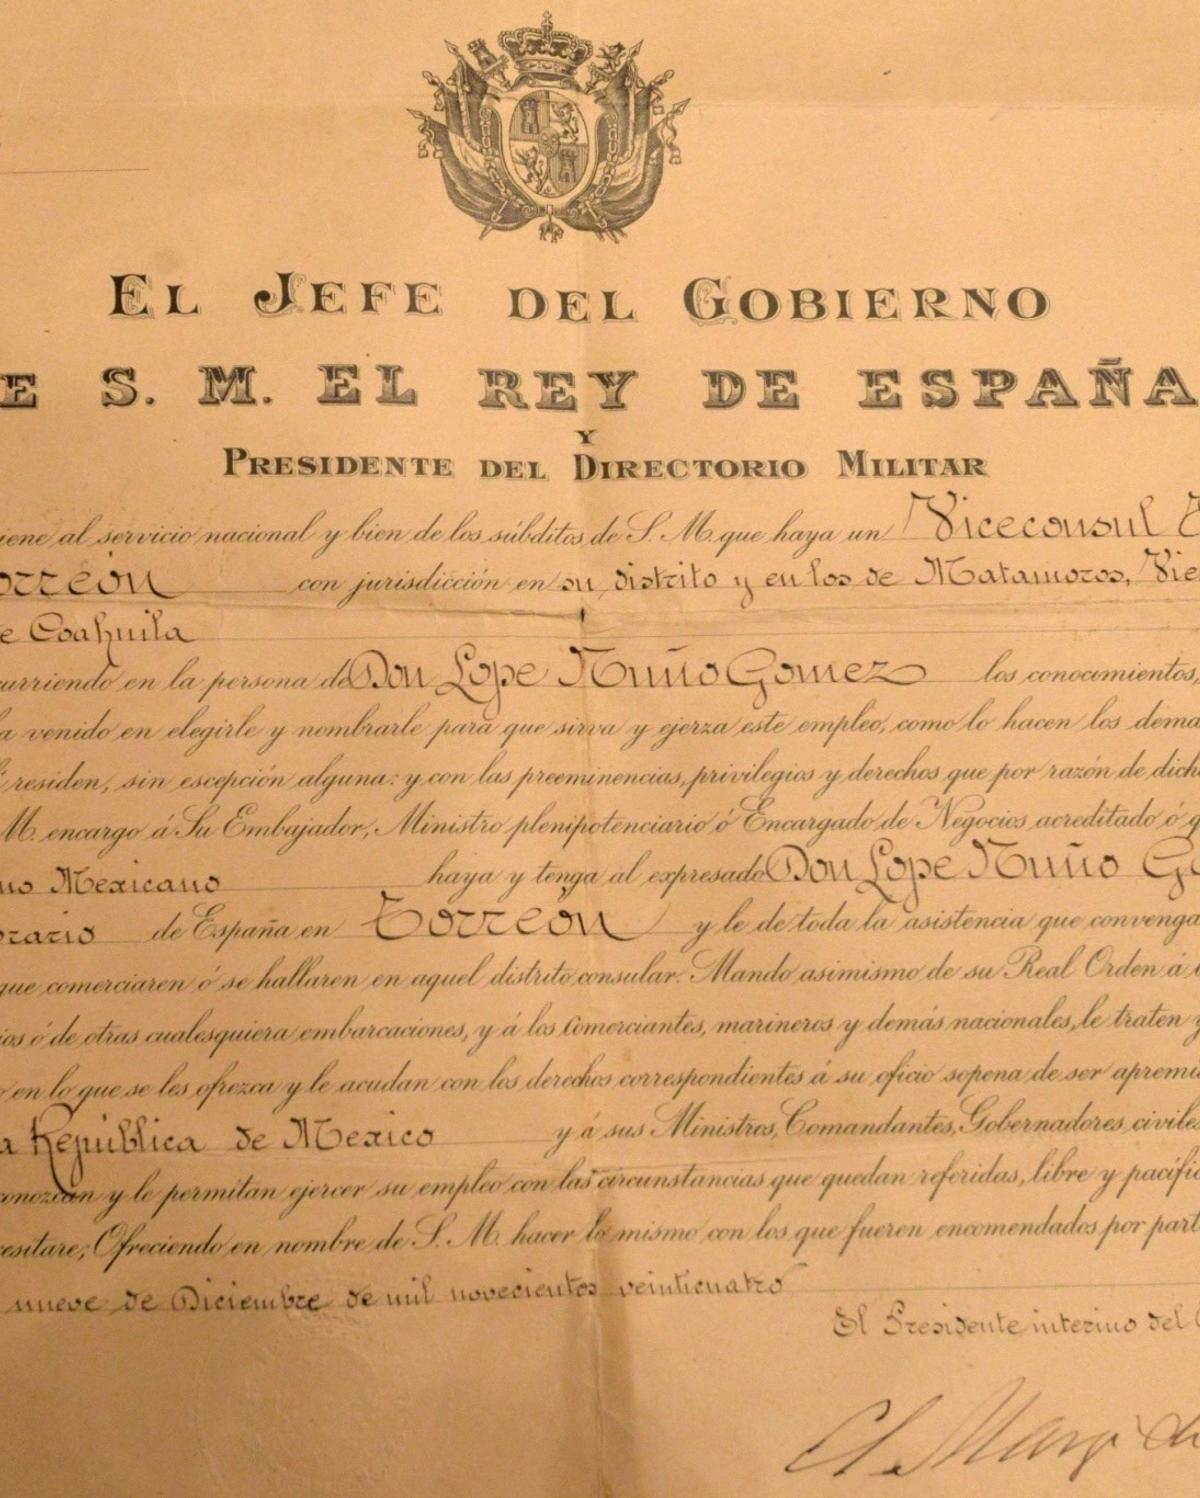 El Jefe del Gobierno
E S. M. EL REY DE ESPAÑA
Y
Presidente del Directorio Militar
iene al servicio nacional y bien de los súbditos de S. M. que haya un Viceconsul
orreón con jurisdicción en su distrito y en los de Matamoros, Vie
e Coahuila
curriendo en la persona de Don Lope Nuño Gomez los conocimientos,
a venido en elegirle y nombrarle para que sirva y ejerza este empleo, como lo hacen los dema
residen, sin escepción alguna: y con las preeminencias, privilegios y derechos que por razón de dich
M. encargo á Su Embajador, Ministro plenipotenciario ó Encargado de Negocios acreditado ó q
no Mexicano haya y tenga al expresado Don Lope Nuño Go
orario de España en Torreón y le de toda la asistencia que convenga
que comerciaren ó se hallaren en aquel distrito consular. Mando asimismo de su Real Orden á
ios ó de otras cualesquiera embarcaciones, y á los Comerciantes, marineros y demás nacionales, le traten y
o en lo que se les ofrezca y le acudan con los derechos correspondientes á su oficio sopena de ser apremi
a República de Mexico y á sus Ministros, Comandantes, Gobernadores civiles
conozcan y le permitan ejercer su empleo con las circunstancias que quedan referidas, libre y pacífic
cesitare; Ofreciendo en nombre de S. M. hacer lo mismo con los que fueren encomendados por part
nueve de Diciembre de mil novecientos veinticuatro
El Presidente interino del
El Marq de